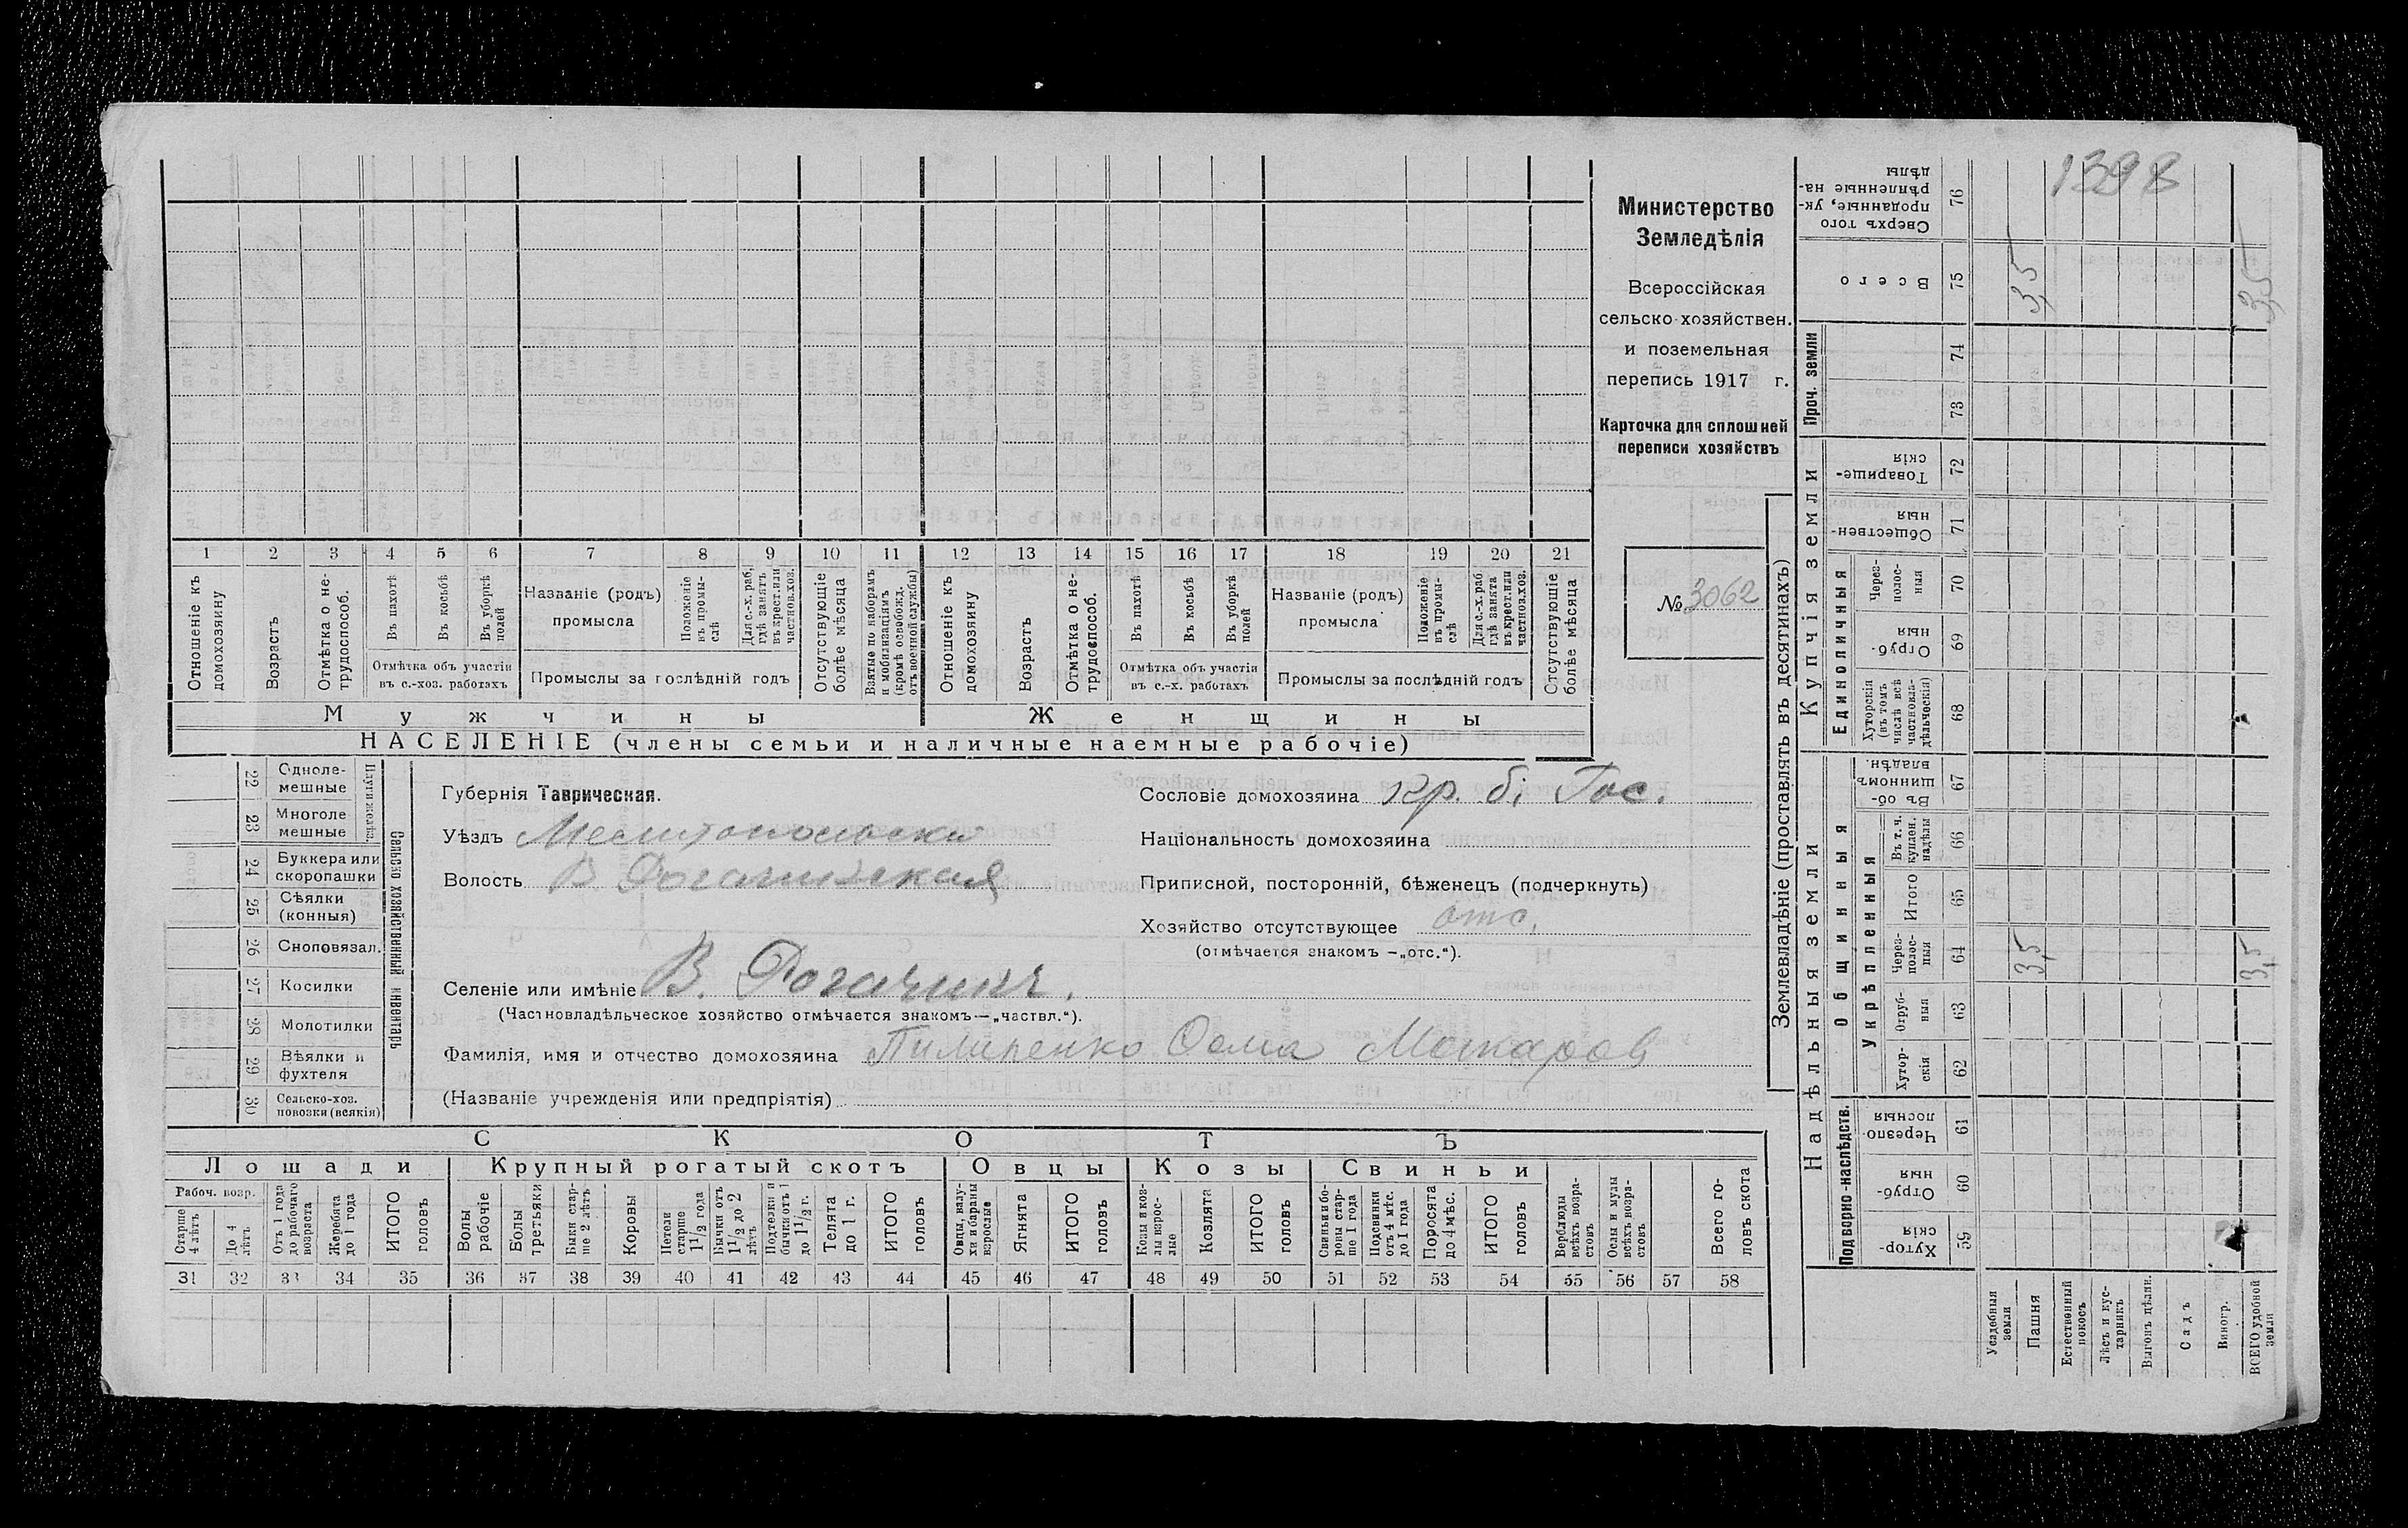 1398
Министерство
Земледѣлія
Всероссійская
сельско-хозяйствен.
и поземельная
перепись 1917 г.
Карточка для сплошней
переписи хозяйствъ
№ 3062
1 2 3 4 5 6 7 8 9 10 11 12 13 14 15 16 17 18 19 20 21
Отношеніе къ домохозяину
Возрастъ
Отмѣтка о не-трудоспособ.
Въ пахотѣ
Въ косьбѣ
Въ уборкѣ полей
Отмѣтка объ участіи въ с.-хоз. работахъ
Названіе (родъ) промысла
Положеніе въ промы-слѣ
Для с.-х. раб, гдѣ занятъ въ крест. или частнов. хоз.
Промыслы за послѣдній годъ
Отсутствующіе болѣе мѣсяца
Взятые по наборамъ и мобилизаціямъ (кромѣ освобожд. отъ военной службы)
Отношеніе къ домохозяину
Возрастъ
Отмѣтка о не-трудоспособ.
Въ пахотѣ
Въ косьбѣ
Въ уборкѣ полей
Отмѣтка объ участіи въ с.-х. работахъ
Названіе (родъ) промысла
Положеніе въ промы-слѣ
Для с.-х. раб гдѣ занята въ крест. или частнов. хоз.
Промыслы за послѣдній годъ
Отсутствующіе болѣе мѣсяца
Мужчины
Женщины
НАСЕЛЕНІЕ (члены семьи и наличные наемные рабочіе)
22 Одноле-мешные
23 Многоле мешные
24 Буккера или скоропашки
25 Сѣялки (конныя)
26 Сноповязал.
27 Косилки
28 Молотилки
29 Вѣялки и фухтеля
30 Сельско-хоз. повозки (всякія)
Сельско хозяйственный инвентарь
Губернія Таврическая.
Уѣздъ Мелитопольски
Волость В Рогачинская
Селеніе или имѣніе В. Рогачикъ.
(Частновладѣльческое хозяйство отмѣчается знакомъ—„частвл.“).
Фамилія, имя и отчество домохозяина Пилипенко Осма Макаров
(Названіе учрежденія или предпріятія)
Сословіе домохозяина Кр. б. Гос.
Національность домохозяина
Приписной, посторонній, бѣженецъ (подчеркнуть)
Хозяйство отсутствующее отс.
(отмѣчается знакомъ —„отс.“).
СКОТЪ
Лошади
Крупный рогатый скотъ
Овцы
Козы
Свиньи
Рабоч. возр.
Старше 4 лѣтъ
До 4 лѣтъ
Отъ 1 года до рабочаго возраста
Жеребята до 1 года
ИТОГО головъ
Волы рабочіе
Волы третьяки
Быки стар-ше 2 лѣтъ
Коровы
Нетели старше 1 1/2 года
Бычки отъ 1 1/2 до 2 лѣтъ
Подтелки и бычки отъ 1 до 1 1/2 г.
Телята до 1 г.
ИТОГО головъ
Овцы, валу-хи и бараны взрослые
Ягнята
ИТОГО головъ
Козы и коз-лы взрос-лые
Козлята
ИТОГО головъ
Свиньи и бо-ровы стар-ше 1 года
Подсвинки отъ 4 мѣс. до 1 года
Поросята до 4 мѣс.
ИТОГО головъ
Верблюды всѣхъ возра-стовъ
Ослы и мулы всѣхъ возра-стовъ
Всего го-ловъ скота
31 32 33 34 35 36 37 38 39 40 41 42 43 44 45 46 47 48 49 50 51 52 53 54 55 56 57 58
Землевладѣніе (проставлять въ десятинахъ)
Надѣльныя земли
Купчія земли
Проч. земли
Подворно-наслѣдств.
Общинныя
Укрѣпленныя
Единоличныя
59 Хутор-скія
60 Отруб-ныя
61 Черезпо-лосныя
62 Хутор-скія
63 Отруб-ныя
64 Через-полос-ныя
65 Итого
66 Въ т. ч. куплен. надѣлы
67 Въ об-щинномъ владѣн.
68 Хуторскія (въ томъ числѣ всѣ частновла-дѣльческія)
69 Отруб-ныя
70 Через-полос-ныя
71 Обществен-ныя
72 Товарище-скія
73
74
75 Всего
76 Сверхъ того проданные, ук-рѣпленные на-дѣлы
Усадебныя земли
Пашня 3,5 3,5
Естественный покосъ
Лѣсъ и кус-тарникъ
Выгонъ дѣлян.
Садъ
Виногр.
ВСЕГО удобной земли 3,5 3,5